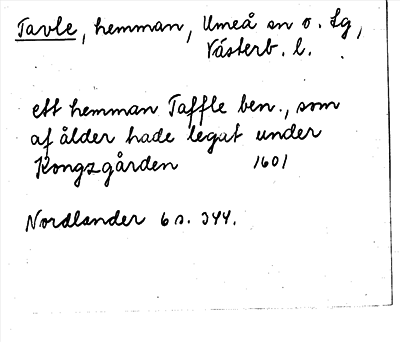 Tavle, hemman, Umeå sn o. Lg,
Västerb. l.
ett hemman Taffle ben., som
af ålder hade legat under
Kongzgården 1601
Nordlander 6 s. 344.